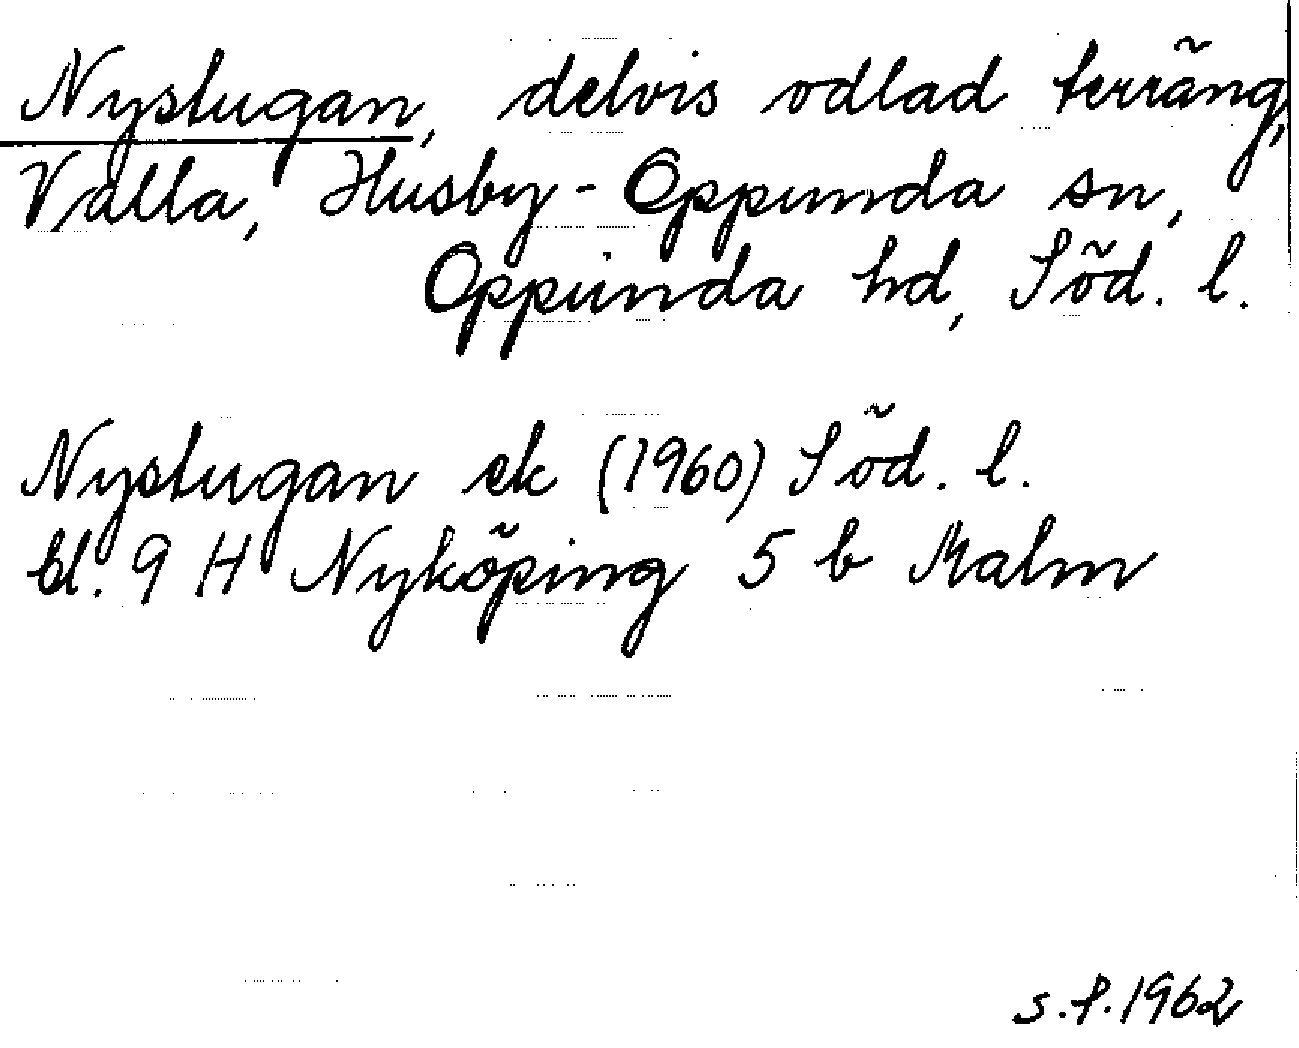 Nystugan, delvis odlad terräng,
Valla, Husby-Oppunda sn,
Oppunda hd, Söd. l.
Nystugan ek (1960) Söd. l.
bl. 9 H Nyköping 5 b Malm
s.f. 1962